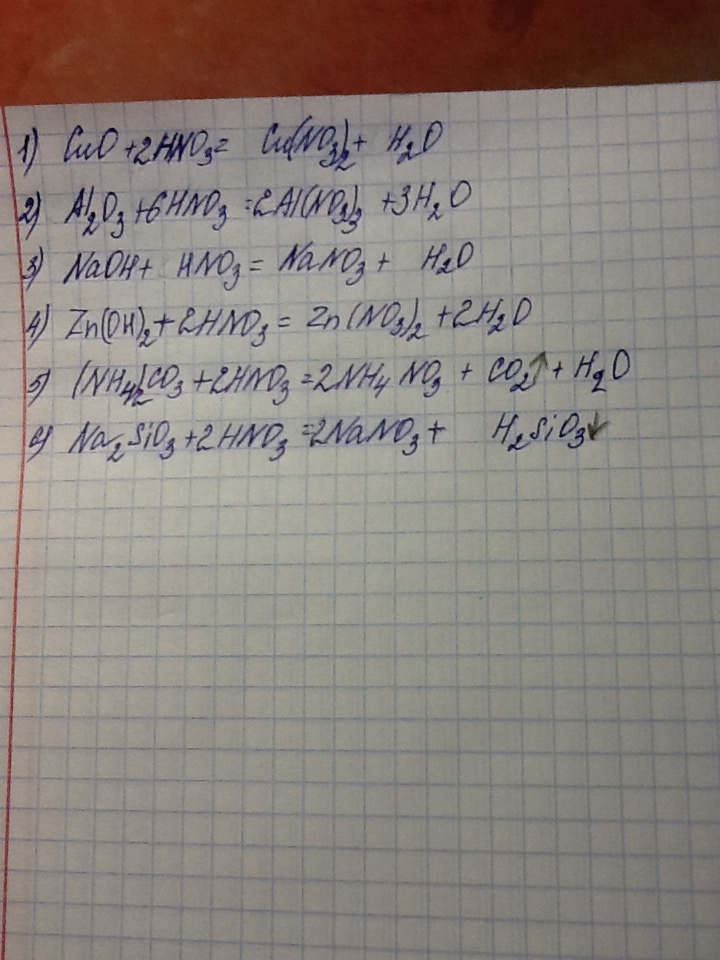 1) CuO + 2HNO₃ = Cu(NO₃)₂ + H₂O
2) Al₂O₃ + 6HNO₃ = 2Al(NO₃)₃ + 3H₂O
3) NaOH + HNO₃ = NaNO₃ + H₂O
4) Zn(OH)₂ + 2HNO₃ = Zn(NO₃)₂ + 2H₂O
5) (NH₄)₂CO₃ + 2HNO₃ = 2NH₄NO₃ + CO₂↑ + H₂O
6) Na₂SiO₃ + 2HNO₃ = 2NaNO₃ + H₂SiO₃↓